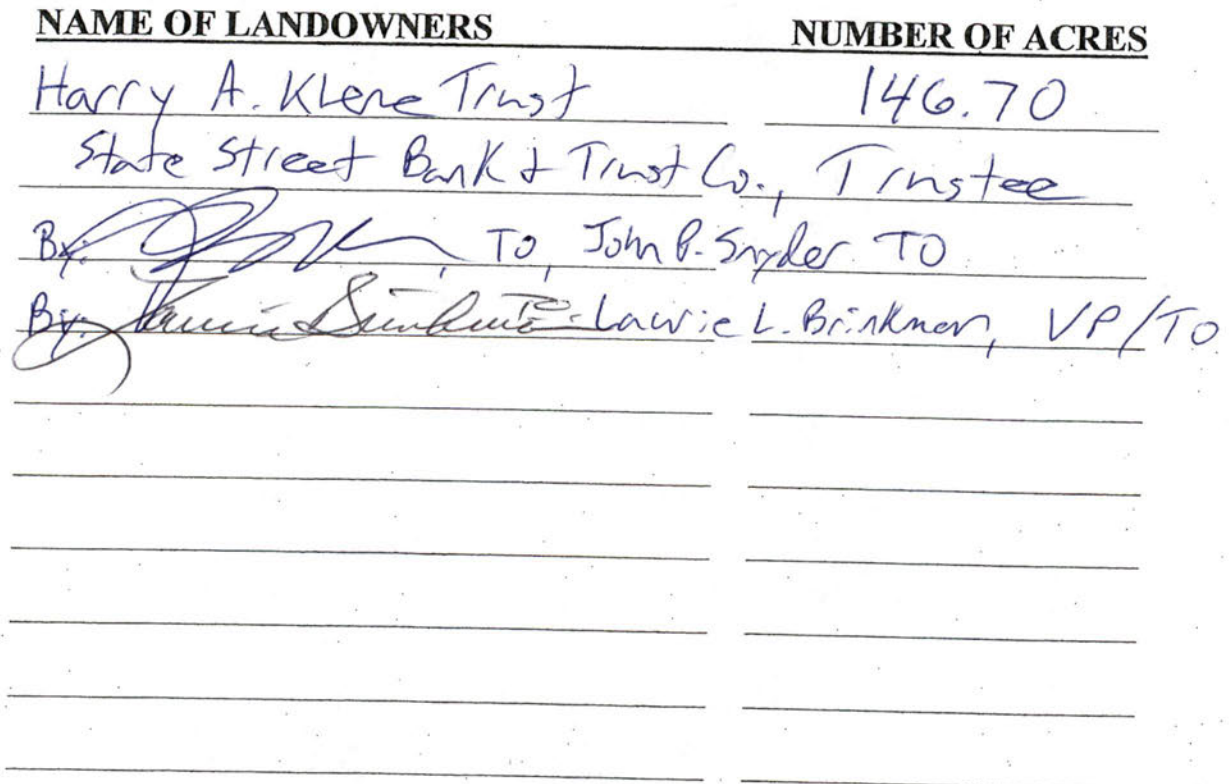 NAME OF LANDOWNERS NUMBER OF ACRES
Harry A. Klene Trust 146.70
State Street Bank & Trust Co., Trustee
By: , TO, John P. Snyder TO
By: Laurie L. Brinkman, VP/TO